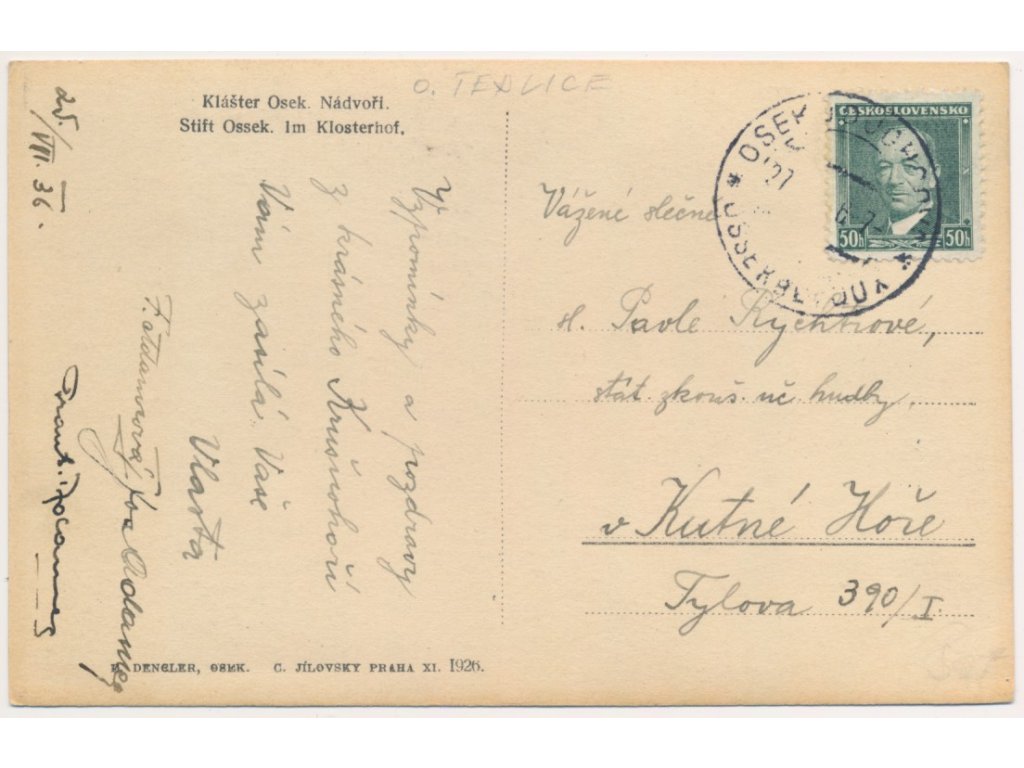 O. TEPLICE
Klášter Osek. Nádvoří.
Stift Ossek. Im Klosterhof.
25/VII. 36.
Vzpomínky a pozdravy
z krásného Krušnohoří
Vám zasílá Vaše
Vlasta
Jos. Adamec
ČESKOSLOVENSKO
50h 50h
OSEK
Vážené slečně
sl. Pavle Rychtrové,
stát. zkouš. uč. hudby,
v Kutné Hoře
Tylova 390/I.
DENGLER, OSEK. C. JÍLOVSKY PRAHA XI. 1926.